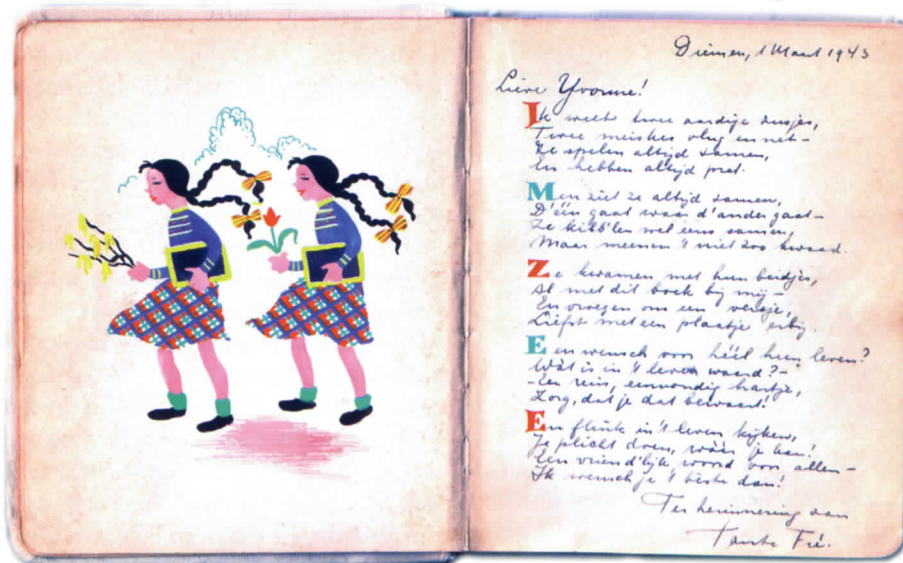 Diemen, 1 Maart 1943
Lieve Yvonne!
Ik weet twee aardige zusjes,
Twee meiskes vlug en net –
Ze spelen altijd samen,
En hebben altijd pret.
Men ziet ze altijd samen,
D'één gaat waar d'ander gaat –
Ze kibb'len wel eens samen,
Maar meenen 't niet zoo kwaad.
Ze kwamen met hun beidjes,
Al met dit boek bij mij –
En vroegen om een versje,
Liefst met een plaatje erbij.
Een wensch voor héél hun leven?
Wàt is in 't leven waard? –
– Een rein, eenvoudig hartje,
Zorg, dat je dat bewaart!
En flink in 't leven kijken,
Je plicht doen, wáár je kan!
Een vriend'lijk woord voor allen –
Ik wensch je 't beste dan!
Ter herinnering aan
Tante Fré.